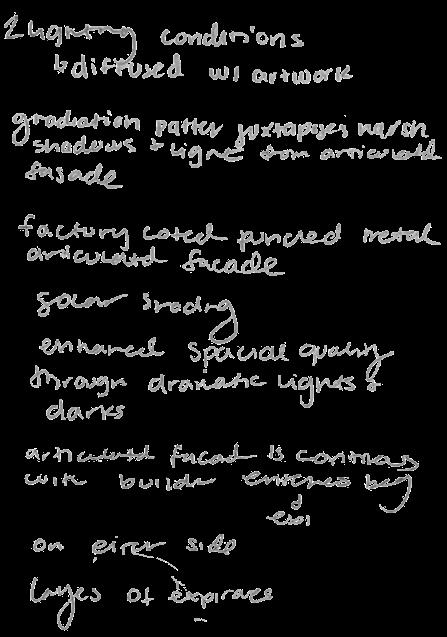 2 lighting conditions
↳ diffused w/ artwork
gradiation patter juxtaposes harsh
shadows + light from articulatd
façade
factory coted punced metal
articulatd facade
solar shading
enhanced spacial quality
through dramatic lights +
darks
articulatd facad is contras
with buildin
on eiter side
layes of